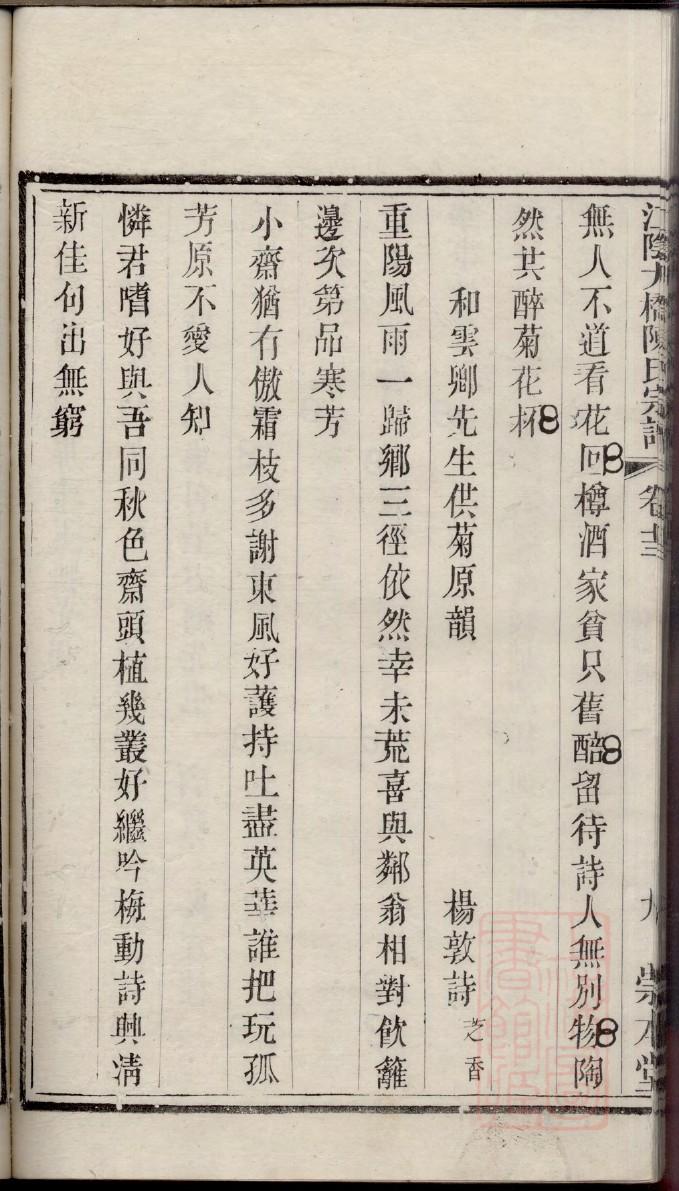 江陰九橋陳氏宗譜 卷十三 九 崇本堂
無人不道看花回樽酒家貧只舊醅留待詩人無別物陶
然共醉菊花杯
和雲卿先生供菊原韻 楊敦詩 芝香
重陽風雨一歸鄉三徑依然幸未荒喜與鄰翁相對飲籬
邊次第品寒芳
小齋猶有傲霜枝多謝東風好護持吐盡英華誰把玩孤
芳原不愛人知
憐君嗜好與吾同秋色齋頭植幾叢好繼吟梅動詩興清
新佳句出無窮